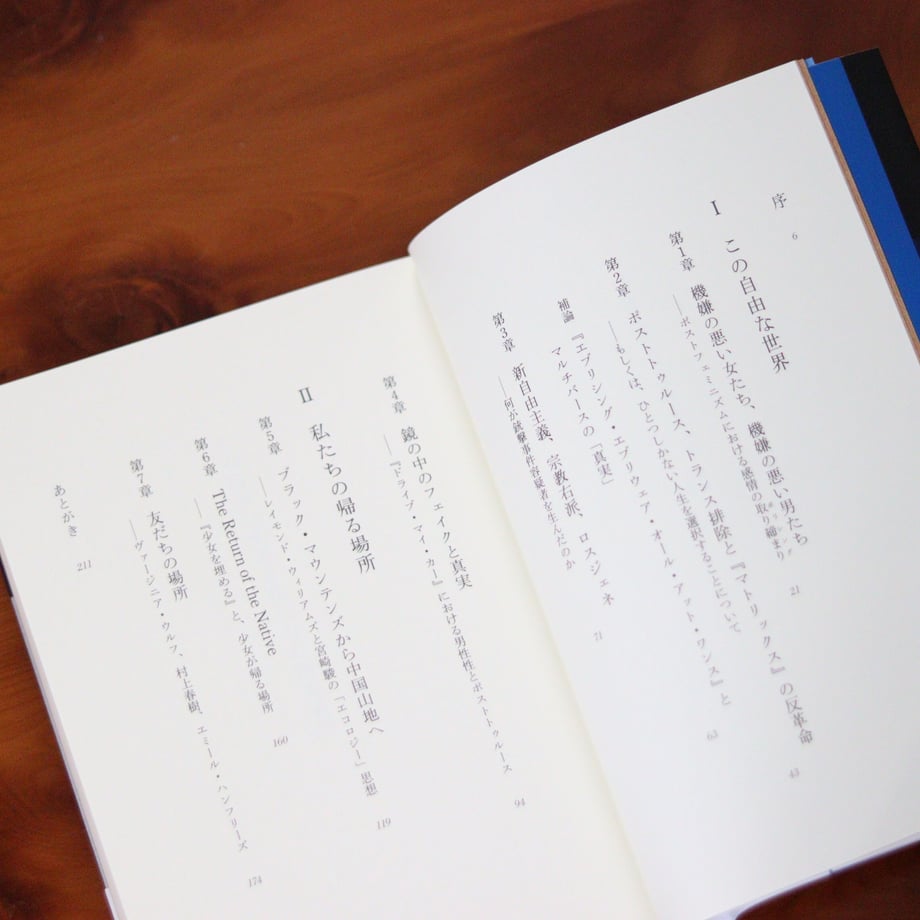 序
6
I この自由な世界
第1章 機嫌の悪い女たち、機嫌の悪い男たち
——ポストフェミニズムにおける感情の取り締まり
21
第2章 ポストトゥルース、トランス排除と『マトリックス』の反革命
——もしくは、ひとつしかない人生を選択することについて
43
補論 『エブリシング・エブリウェア・オール・アット・ワンス』と
マルチバースの「真実」
63
第3章 新自由主義、宗教右派、ロスジェネ
——何が銃撃事件容疑者を生んだのか
71
第4章 鏡の中のフェイクと真実
——『ドライブ・マイ・カー』における男性性とポストトゥルース
94
II 私たちの帰る場所
第5章 ブラック・マウンテンズから中国山地へ
——レイモンド・ウィリアムズと宮崎駿の「エコロジー」思想
119
第6章 The Return of the Native
——『少女を埋める』と、少女が帰る場所
160
第7章 友だちの場所
——ヴァージニア・ウルフ、村上春樹、エミール・ハンフリーズ
174
あとがき
211